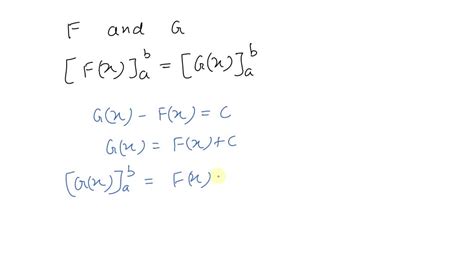 F and G
[F(x)]ₐᵇ = [G(x)]ₐᵇ
G(x) - F(x) = C
G(x) = F(x)+C
[G(x)]ₐᵇ = F(x)